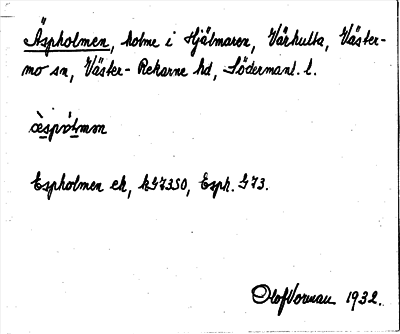 Äspholmen, holme i Hjälmaren, Vårhulta, Väster-
mo sn, Väster-Rekarne hd, Södermanl. l.
æ̀spòlmən
Espholmen ek, kS7350, Esph. S73.
Olof Vorman 1932.